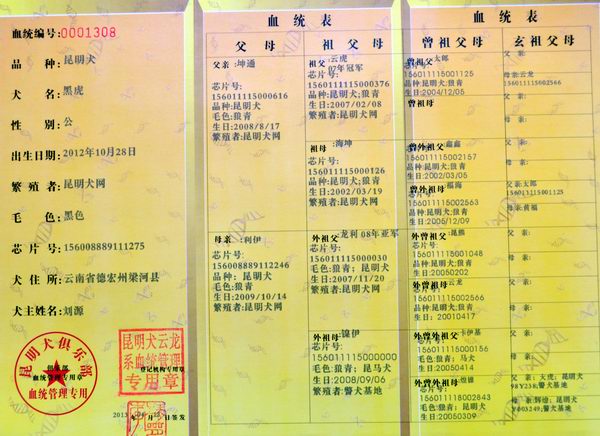 血统编号:0001308
品 种:昆明犬
犬 名:黑虎
性 别:公
出生日期:2012年10月28日
繁 殖 者:昆明犬网
毛 色:黑色
芯 片 号:156008889111275
犬 住 所:云南省德宏州梁河县
犬主姓名:刘源
昆明犬俱乐部
血统管理专用章
血统管理专用
昆明犬云龙
系血统管理
登记机构专用章
专用章
日签发
血 统 表
父 母
父亲:坤通
芯片号:
156011115000616
品种:昆明犬
毛色:狼青
生日:2008/8/17
繁殖者:昆明犬网
母亲:利伊
芯片号:
156008889112246
品种: 昆明犬
毛色:狼青
生日:2009/10/14
繁殖者:昆明犬网
祖 父 母
祖父:云虎
07年冠军
芯片号:
156011115000376
品种:昆明犬;狼青
生日:2007/02/08
繁殖者:昆明犬网
祖母:海坤
芯片号:
156011115000126
品种:昆明犬;狼青
生日:2002/03/19
繁殖者:昆明犬网
外祖父:龙利 08年亚军
芯片号:
156011115000030
毛色:狼青; 昆明犬
生日:2007/11/20
繁殖者:昆明犬网
外祖母:镍伊
芯片号:
156011115000000
毛色:狼青; 昆马犬
生日:2008/09/06
繁殖者:警犬基地
血 统 表
曾祖父母
曾祖父:太郎
156011115001125
品种:昆明犬;狼青
生日:2004/12/05
曾祖母
曾外祖父:鑫鑫
156011115002157
生日:2002/03/05
曾外祖母:福海
品种:昆明犬;狼青
生日:2005/12/09
外曾祖父:昆熊
芯片号:
156011115001048
昆明犬;狼青
生日:20050202
外曾祖母:云龙
芯片号:
昆明犬;狼青
生日:20010417
外曾外祖父:卡伊基
芯片号:
狼青; 马犬
生日:20050414
外曾外祖母
芯片号:
156011118002843
狼青; 昆明犬
生日:20050309
玄祖父母
父亲:
母亲:云龙
156011115002566
父亲:
母亲:
父亲:
母亲:
父亲:太郎
母亲:黄福
父亲:
母亲:
父亲:
母亲:
父亲:
母亲:
父亲: 大虎; 昆明犬
98Y238;警犬基地
母亲:辉煌; 昆明犬
Y003249;警犬基地